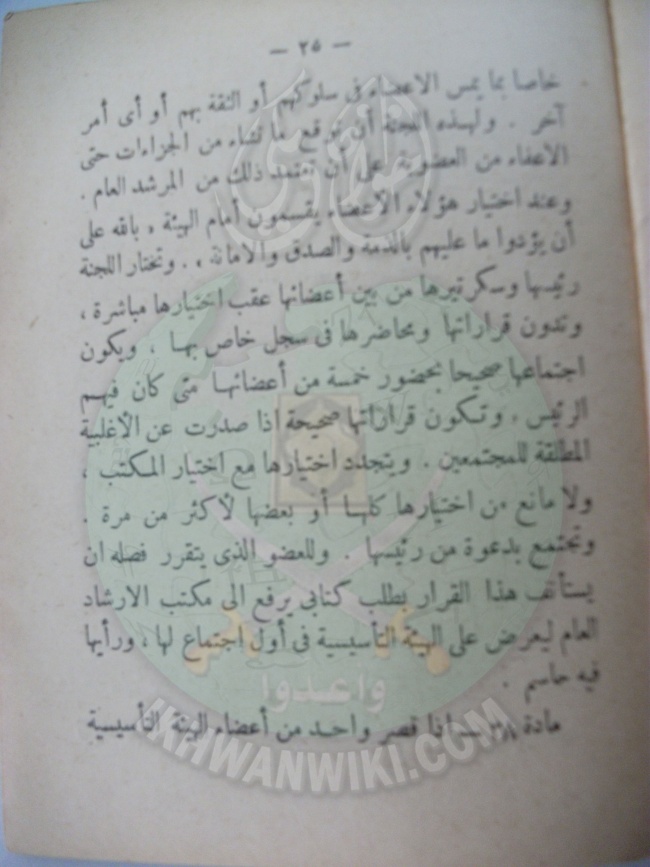 — ٢٥ —
خاصا بما يمس الاعضاء فى سلوكهم أو الثقة بهم أو أى أمر
آخر . ولهذه اللجنة أن توقع ما تشاء من الجزاءات حتى
الاعفاء من العضوية على أن تعتمد ذلك من المرشد العام .
وعند اختيار هؤلاء الاعضاء يقسمون أمام الهيئة « بالله على
أن يؤدوا ما عليهم بالذمة والصدق والامانة » . وتختار اللجنة
رئيسها وسكرتيرها من بين أعضائها عقب اختيارها مباشرة ،
وتدون قراراتها ومحاضرها فى سجل خاص بها ، ويكون
اجتماعها صحيحا بحضور خمسة من أعضائها متى كان فيهم
الرئيس . وتكون قراراتها صحيحة اذا صدرت عن الأغلبية
المطلقة للمجتمعين . ويتجدد اختيارها مع اختيار المكتب ،
ولا مانع من اختيارها كلها أو بعضها لأكثر من مرة .
وتجتمع بدعوة من رئيسها . وللعضو الذى يتقرر فصله ان
يستأنف هذا القرار بطلب كتابى يرفع الى مكتب الارشاد
العام ليعرض على الهيئة التأسيسية فى أول اجتماع لها ، ورأيها
فيه حاسم .
مادة ٣٨ — اذا قصر واحد من أعضاء الهيئة التأسيسية
وأعدوا
IKHWANWIKI.COM